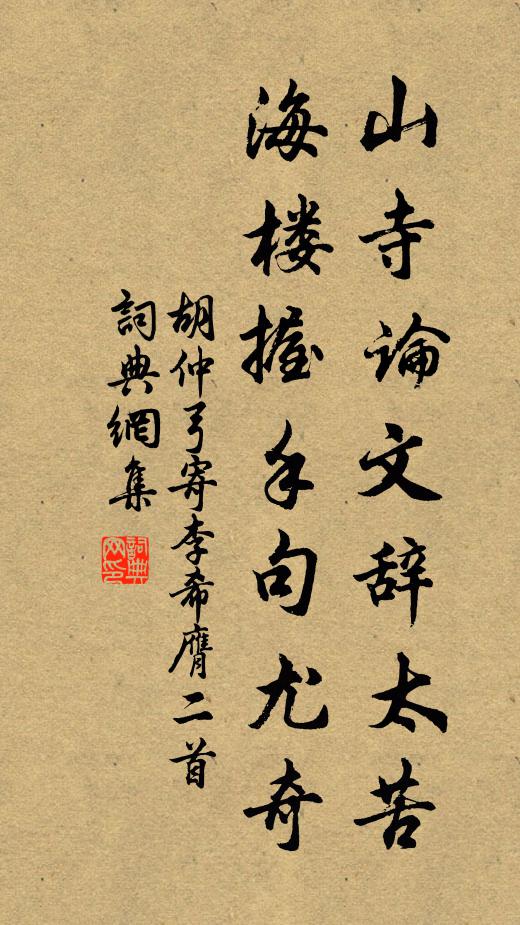 山寺論文辞太苦
海楼握手句尤奇
胡仲弓寄李希膺二首
詞典網集
詞典网印